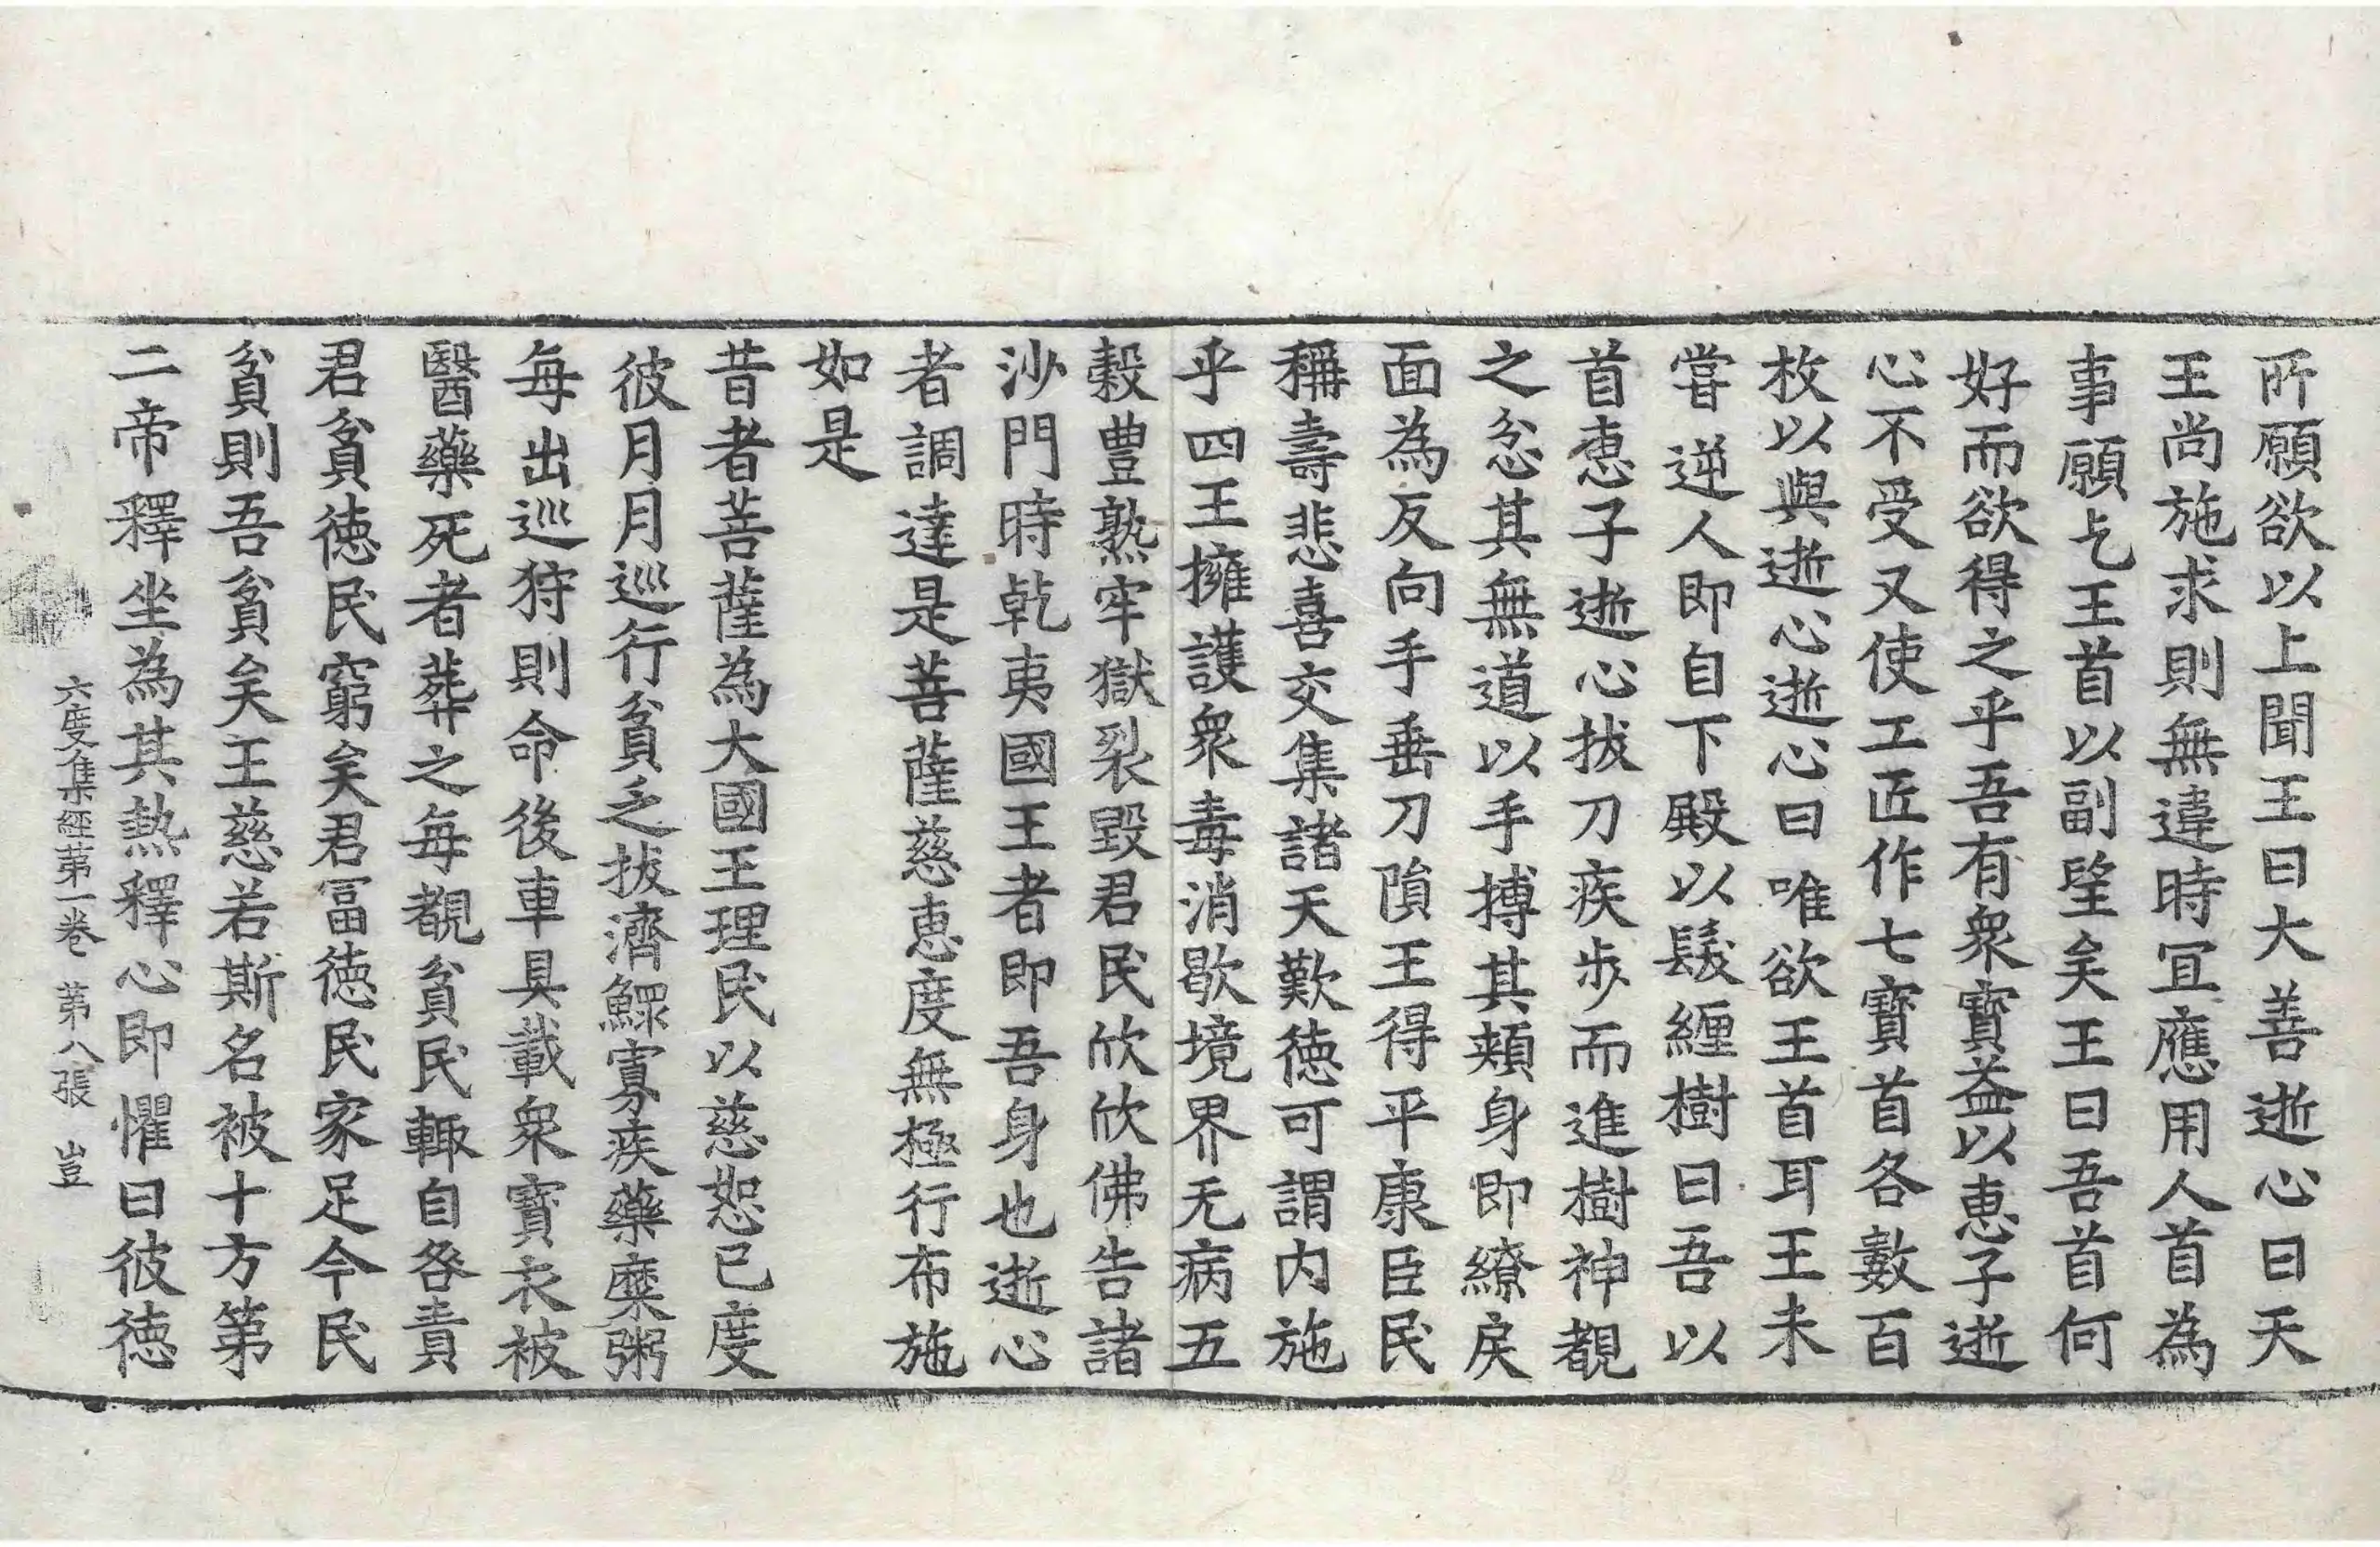 所願欲以上聞王曰大善逝心曰天
王尚施求則無違時冝應用人首為
事願乞王首以副望矣王曰吾首何
好而欲得之乎吾有衆寶益以恵子逝
心不受又使工匠作七寶首各數百
枚以與逝心逝心曰唯欲王首耳王未
嘗逆人即自下殿以髮纏樹曰吾以
首恵子逝心拔刀疾步而進樹神覩
之忿其無道以手搏其頰身即繚戾
面為反向手垂刀隕王得平康臣民
稱壽悲喜交集諸天歎徳可謂内施
乎四王擁護衆毒消歇境界无病五
穀豊熟牢獄裂毀君民欣欣佛告諸
沙門時乹夷國王者即吾身也逝心
者調達是菩薩慈恵度無極行布施
如是
昔者菩薩為大國王理民以慈恕已度
彼月月巡行貧乏拔濟鰥寡疾藥糜粥
每出巡狩則命後車具載衆寶衣被
醫藥死者葬之每覩貧民輙自咎責
君貧徳民窮矣君冨徳民家足今民
貧則吾貧矣王慈若斯名被十方第
二帝釋坐為其熱釋心即懼曰彼徳
六度集經第一卷 第八張 豈